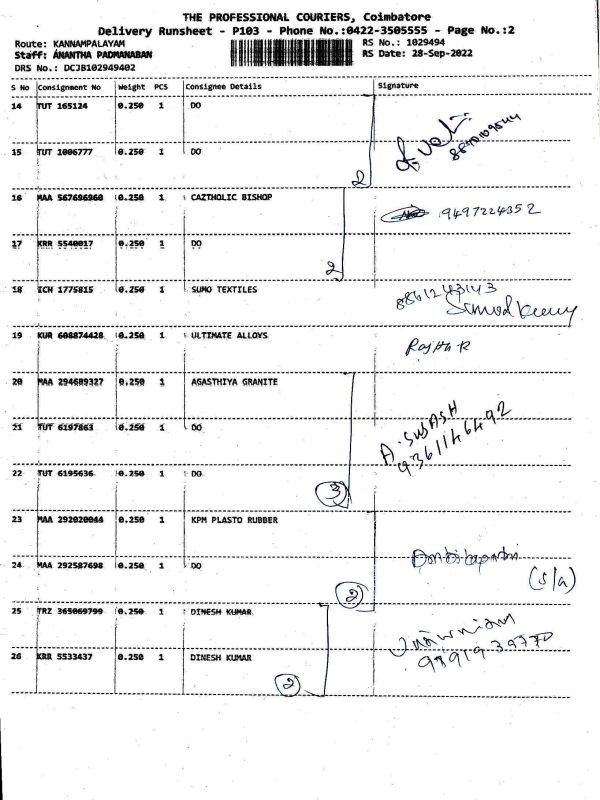 THE PROFESSIONAL COURIERS, Coimbatore
Delivery Runsheet - P103 - Phone No.:0422-3505555 - Page No.:2
Route: KANNAMPALAYAM
RS No.: 1029494
Staff: ANANTHA PADMANABAN
RS Date: 28-Sep-2022
DRS No.: DCJB102949402
S No Consignment No Weight PCS Consignee Details Signature
14 TUT 165124 0.250 1 DO
15 TUT 1006777 0.250 1 DO
2
16 MAA 567696960 0.250 1 CAZTHOLIC BISHOP
9497224352
17 KRR 5540017 0.250 1 DO
2
18 ICH 1775815 0.250 1 SUMO TEXTILES
19 KUR 608874428 0.250 1 ULTIMATE ALLOYS
20 MAA 294689327 0.250 1 AGASTHIYA GRANITE
A. SUBASH
9361146492
21 TUT 6197863 0.250 1 DO
22 TUT 6195636 0.250 1 DO
3
23 MAA 292020044 0.250 1 KPM PLASTO RUBBER
24 MAA 292587698 0.250 1 DO
(S/a)
2
25 TRZ 365069799 0.250 1 DINESH KUMAR
26 KRR 5533437 0.250 1 DINESH KUMAR
2